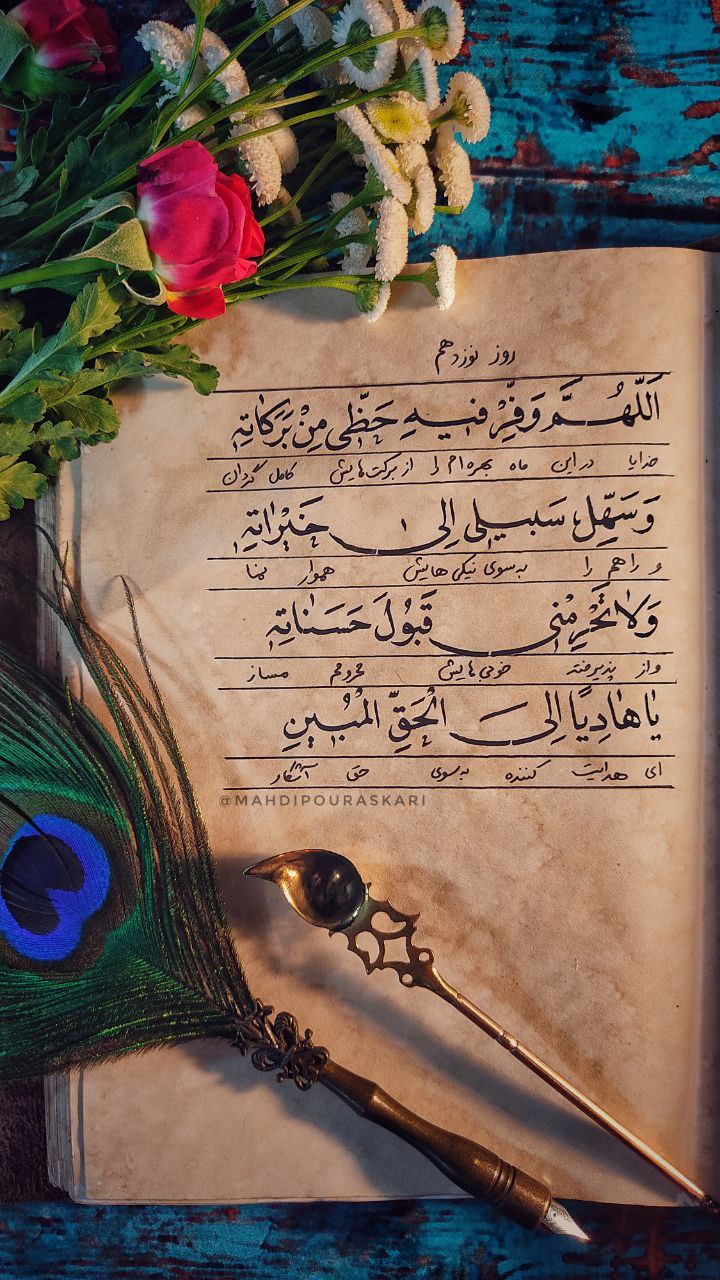 روز نوزدهم
اَللّٰهُمَّ وَفِّرْ فیهِ حَظّی مِنْ بَرَکاتِهِ
خدایا در این ماه بهره‌ام را از برکت‌هایش کامل گردان
وَ سَهِّلْ سَبیلی اِلی خَیْراتِهِ
و راهم را به‌سوی نیکی‌هایش هموار نما
وَلا تَحْرِمْنی قَبُولَ حَسَناتِهِ
و از پذیرفتن خوبی‌هایش محرومم مساز
یا هادِیًا اِلَی الْحَقِّ الْمُبینِ
ای هدایت کننده به‌سوی حق آشکار
@MAHDIPOURASKARI